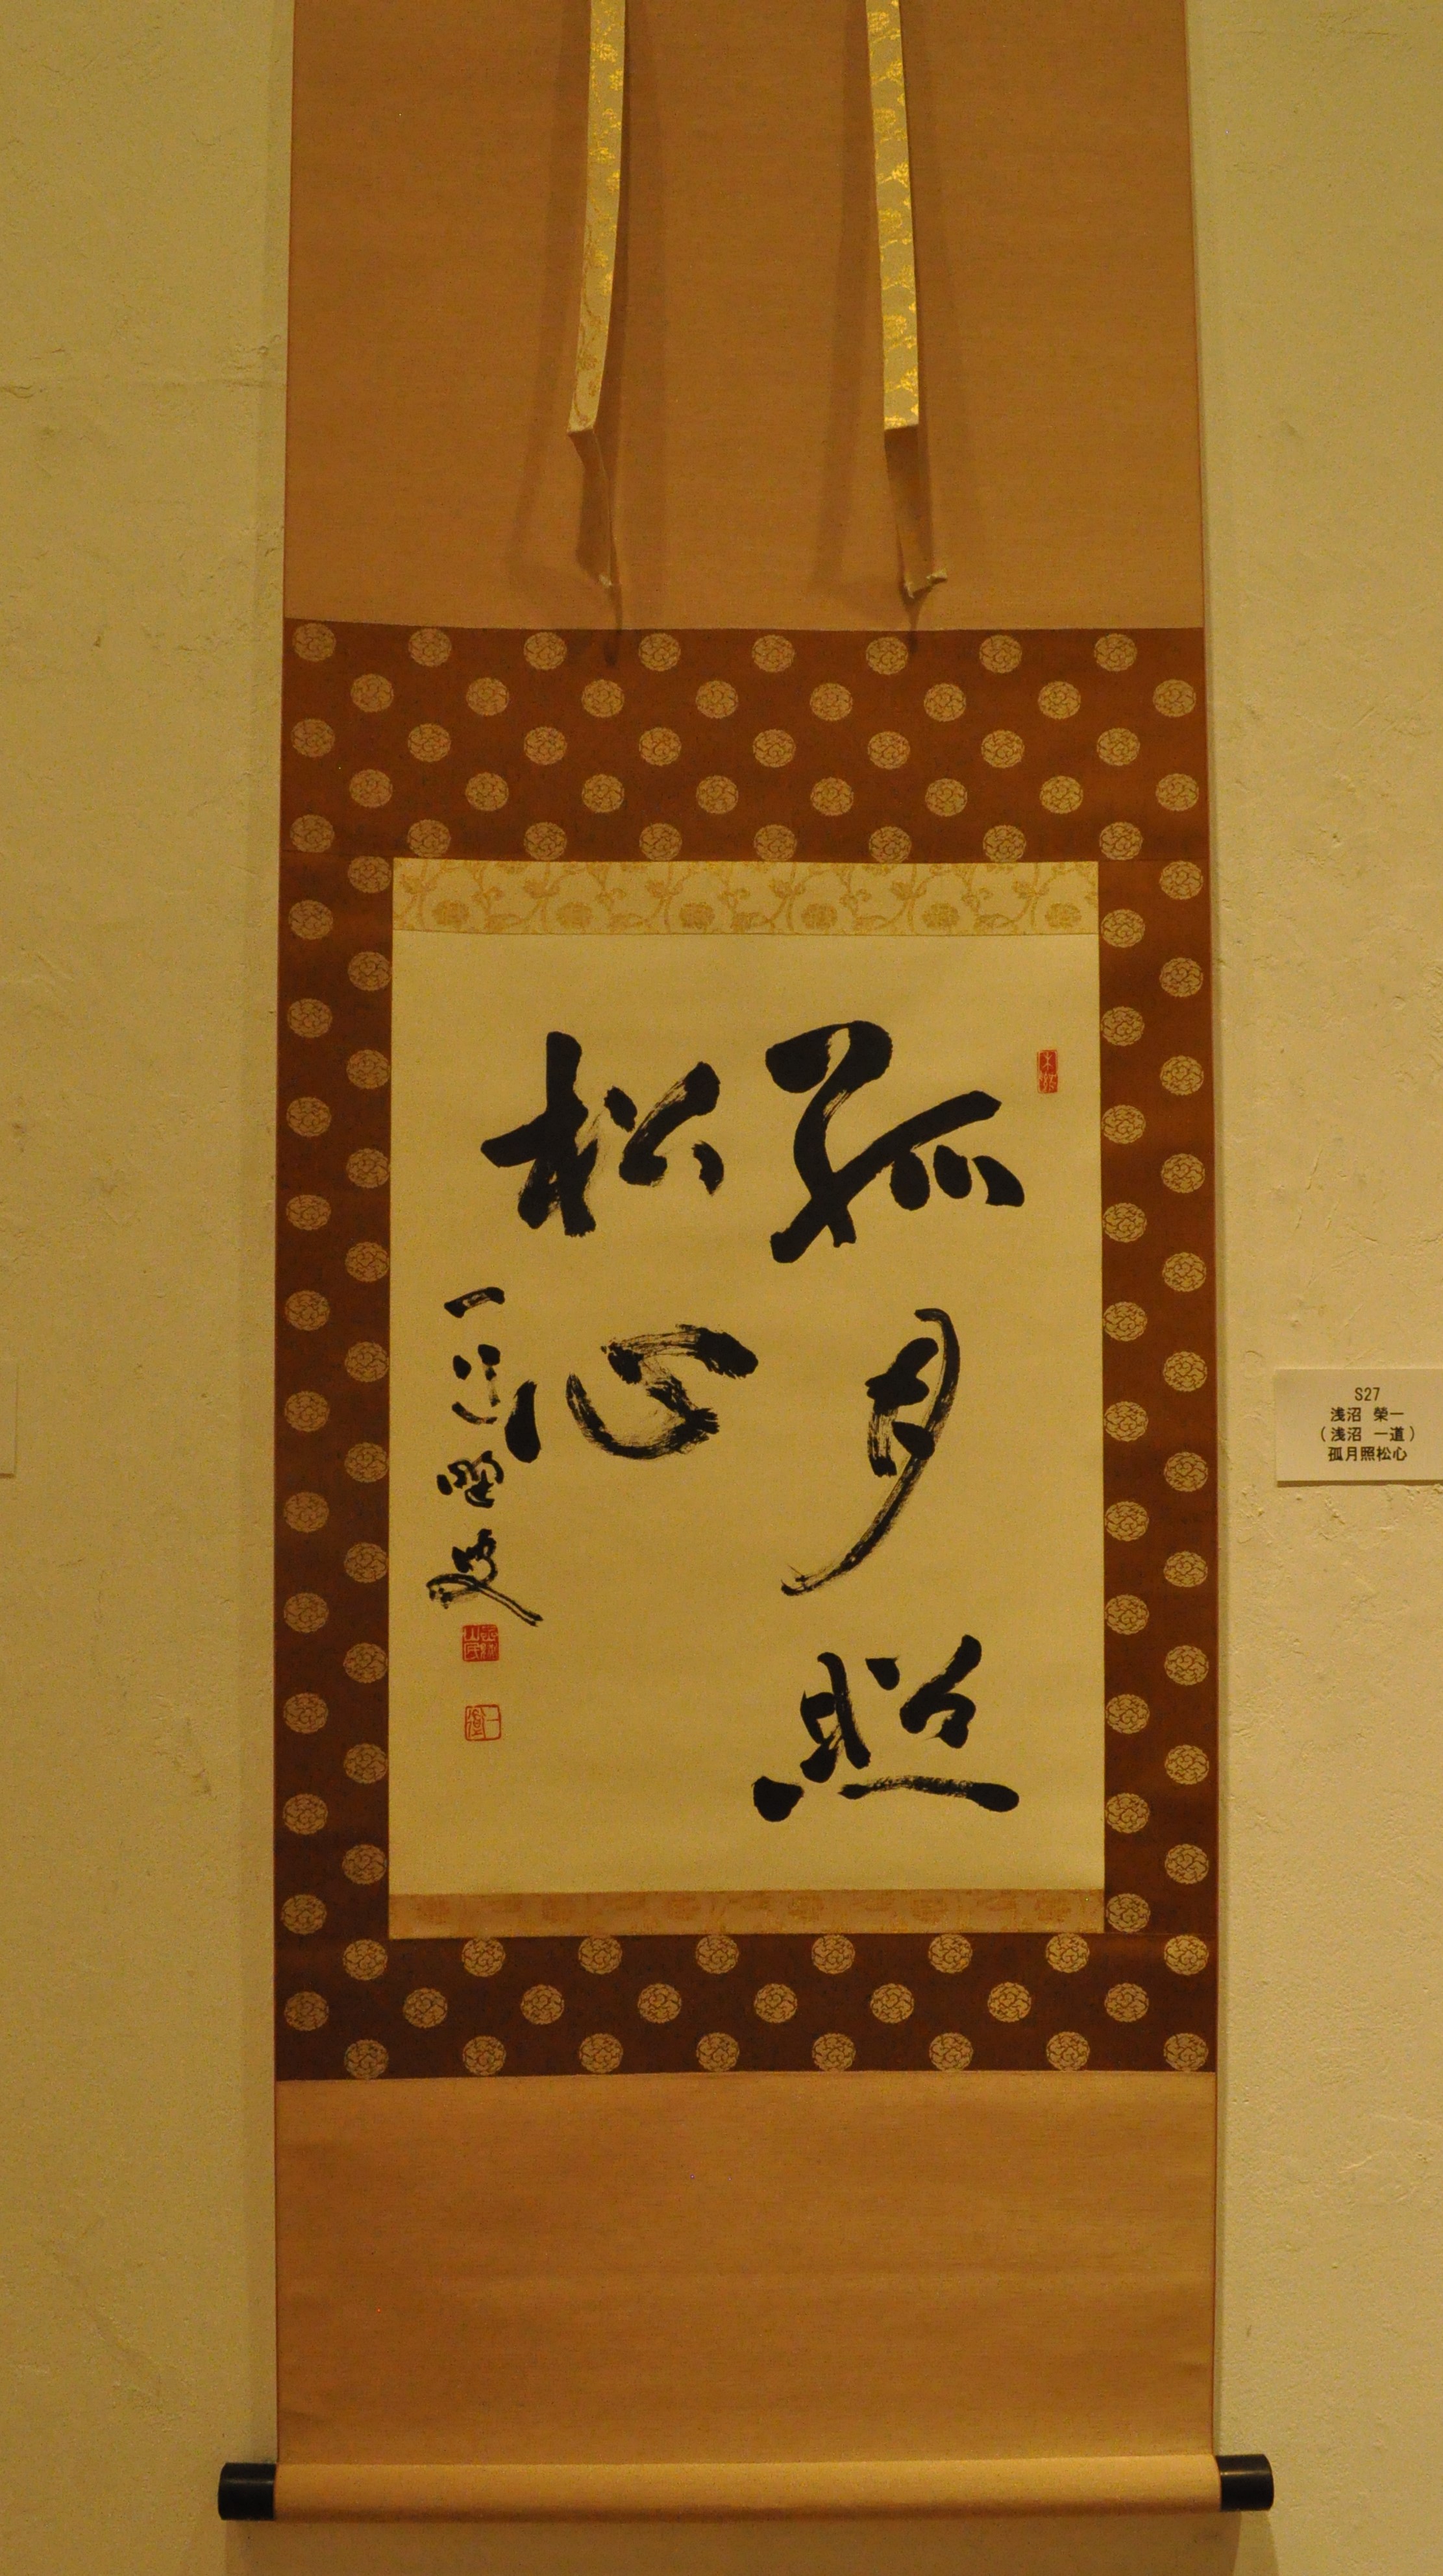 孤月照
松心
一道野叟
S27
浅沼 榮一
(浅沼 一道)
孤月照松心